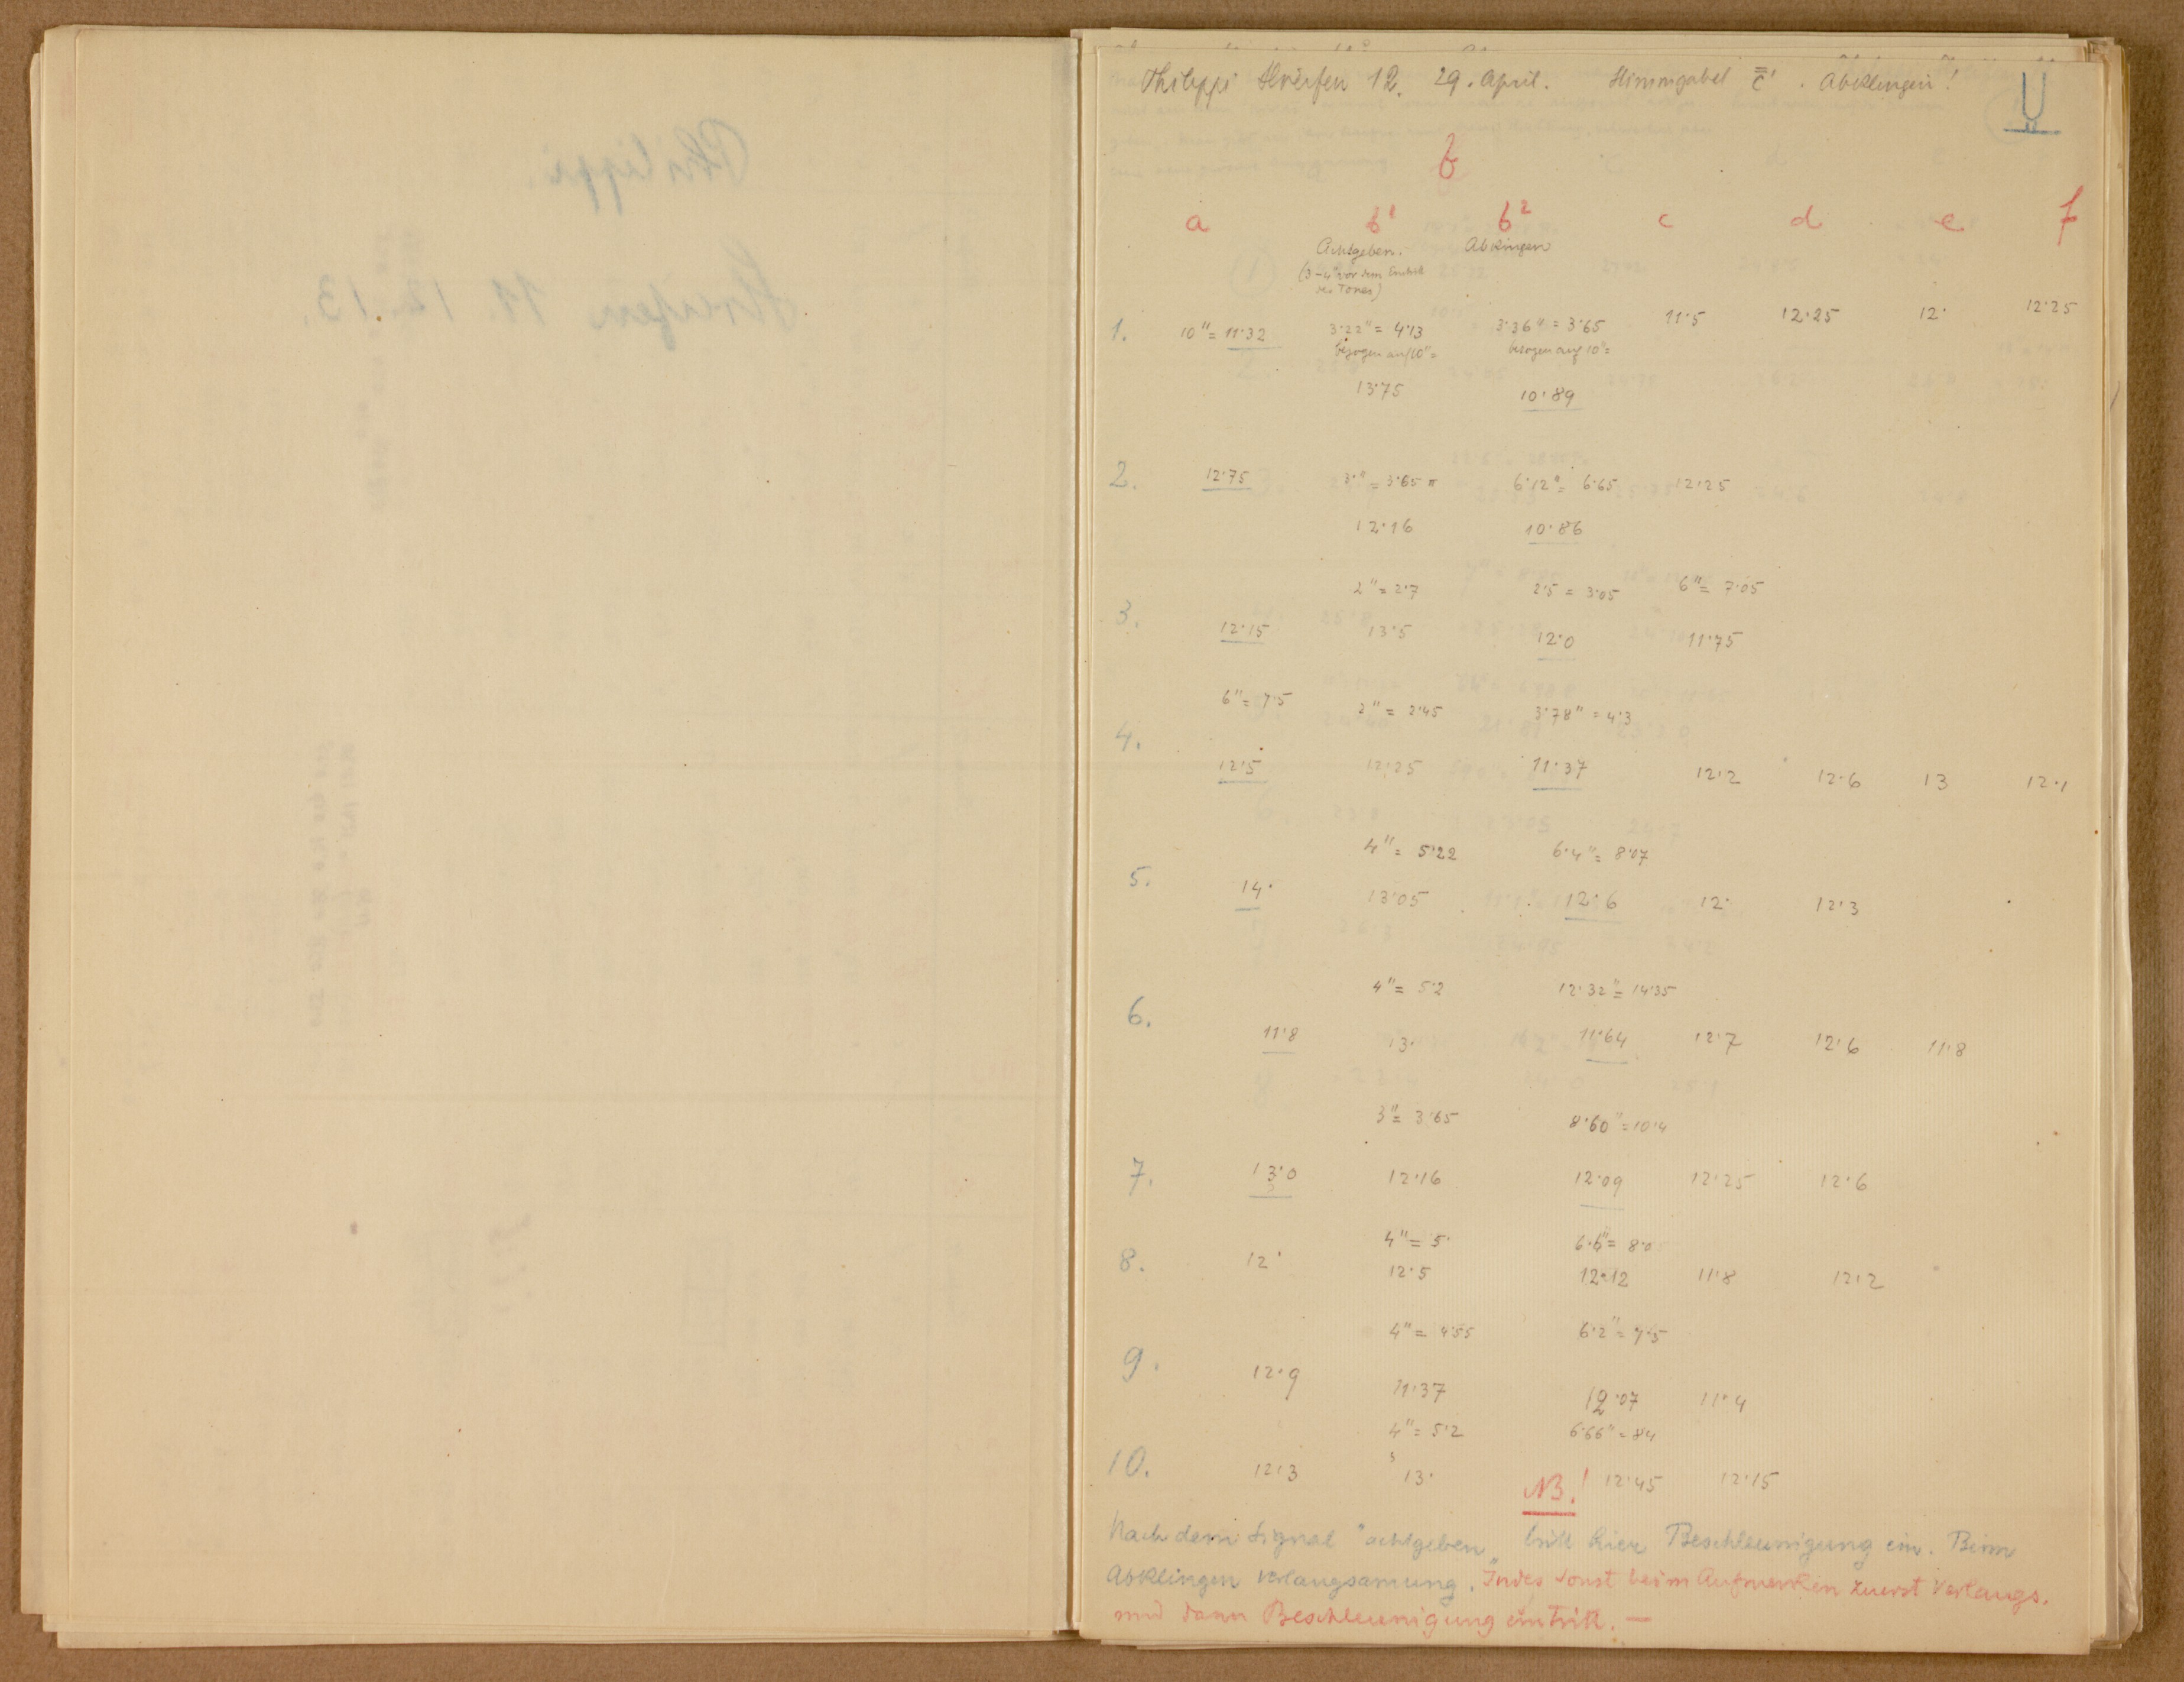 Philippi Streifen 12. 29. April. Stimmgabel c̿'. Abklingen!
b
a b¹ b² c d e f
Achtgeben. Abklingen
(3-4" vor dem
des Tones)
1. 10" = 11·32 3·22" = 4·13 3·36" = 3·65 11·5 12·25 12· 12·25
bezogen auf 10" = bezogen auf 10" =
13·75 10·89
2. 12·75 3·" = 3·65 6·12" = 6·65 12·25
12·16 10·86
2" = 2·7 2·5 = 3·05 6" = 7·05
3. 12·15 13·5 12·0 11·75
6" = 7·5 2" = 2·45 3·78" = 4·3
4. 12·5 12·25 11·37 12·2 12·6 13 12·1
4" = 5·22 6·4" = 8·07
5. 14· 13·05 12·6 12· 12·3
4" = 5·2 12·32" = 14·35
6. 11·8 13· 11·64 12·7 12·6 11·8
3" = 3·65 8·60" = 10·4
7. 13·0 12·16 12·09 12·25 12·6
4" = 5· 6·6" = 8·0
8. 12· 12·5 12·12 11·8 12·2
4" = 4·55 6·2" = 7·5
9. 12·9 11·37 12·07 11·4
4" = 5·2 6·66" = 8·4
10. 12·3 13· 12·45 12·15
NB!
Nach dem Signal "achtgeben" tritt hier Beschleunigung ein. Beim
Abklingen Verlangsamung. Indes sonst beim Aufmerken zuerst Verlangs.
und dann Beschleunigung eintritt. —